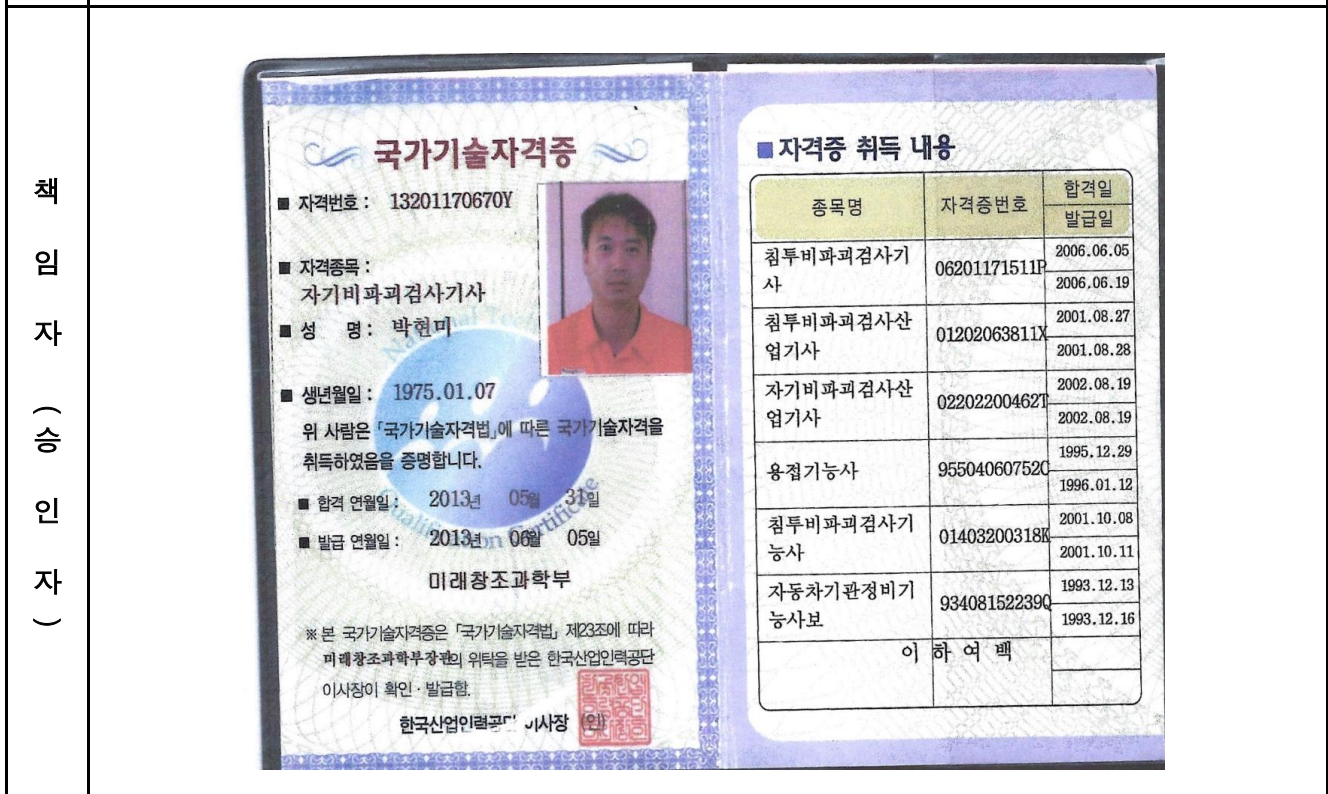 책
임
자
(
승
인
자
)
국가기술자격증
■ 자격번호 : 13201170670Y
■ 자격종목 :
자기비파괴검사기사
■ 성 명 : 박현미
■ 생년월일 : 1975.01.07
위 사람은 「국가기술자격법」에 따른 국가기술자격을
취득하였음을 증명합니다.
■ 합격 연월일 : 2013년 05월 31일
■ 발급 연월일 : 2013년 06월 05일
미래창조과학부
※ 본 국가기술자격증은 「국가기술자격법」 제23조에 따라
미래창조과학부장관의 위탁을 받은 한국산업인력공단
이사장이 확인·발급함.
한국산업인력공단 이사장 (인)
National Tech
Qualification Certificate
■ 자격증 취득 내용
종목명 자격증번호 합격일
발급일
침투비파괴검사기 06201171511P 2006.06.05
사 2006.06.19
침투비파괴검사산 01202063811X 2001.08.27
업기사 2001.08.28
자기비파괴검사산 02202200462T 2002.08.19
업기사 2002.08.19
용접기능사 95504060752O 1995.12.29
1996.01.12
침투비파괴검사기 01403200318K 2001.10.08
능사 2001.10.11
자동차기관정비기 93408152239Q 1993.12.13
능사보 1993.12.16
이 하 여 백